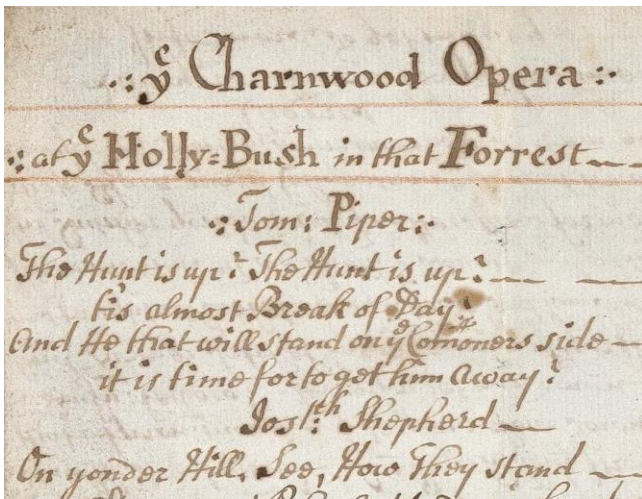 .:yͤ Charnwood Opera:.
.:at yͤ Holly=Bush in that Forrest
.:Tom: Piper:.
The Hunt is up: The Hunt is up:
tis almost Break of Day:
And He that will stand on yͤ Com̄oners side
it is time for to get him away:
Josᵗʰ: Shepherd
On yonder Hill, See, How They stand